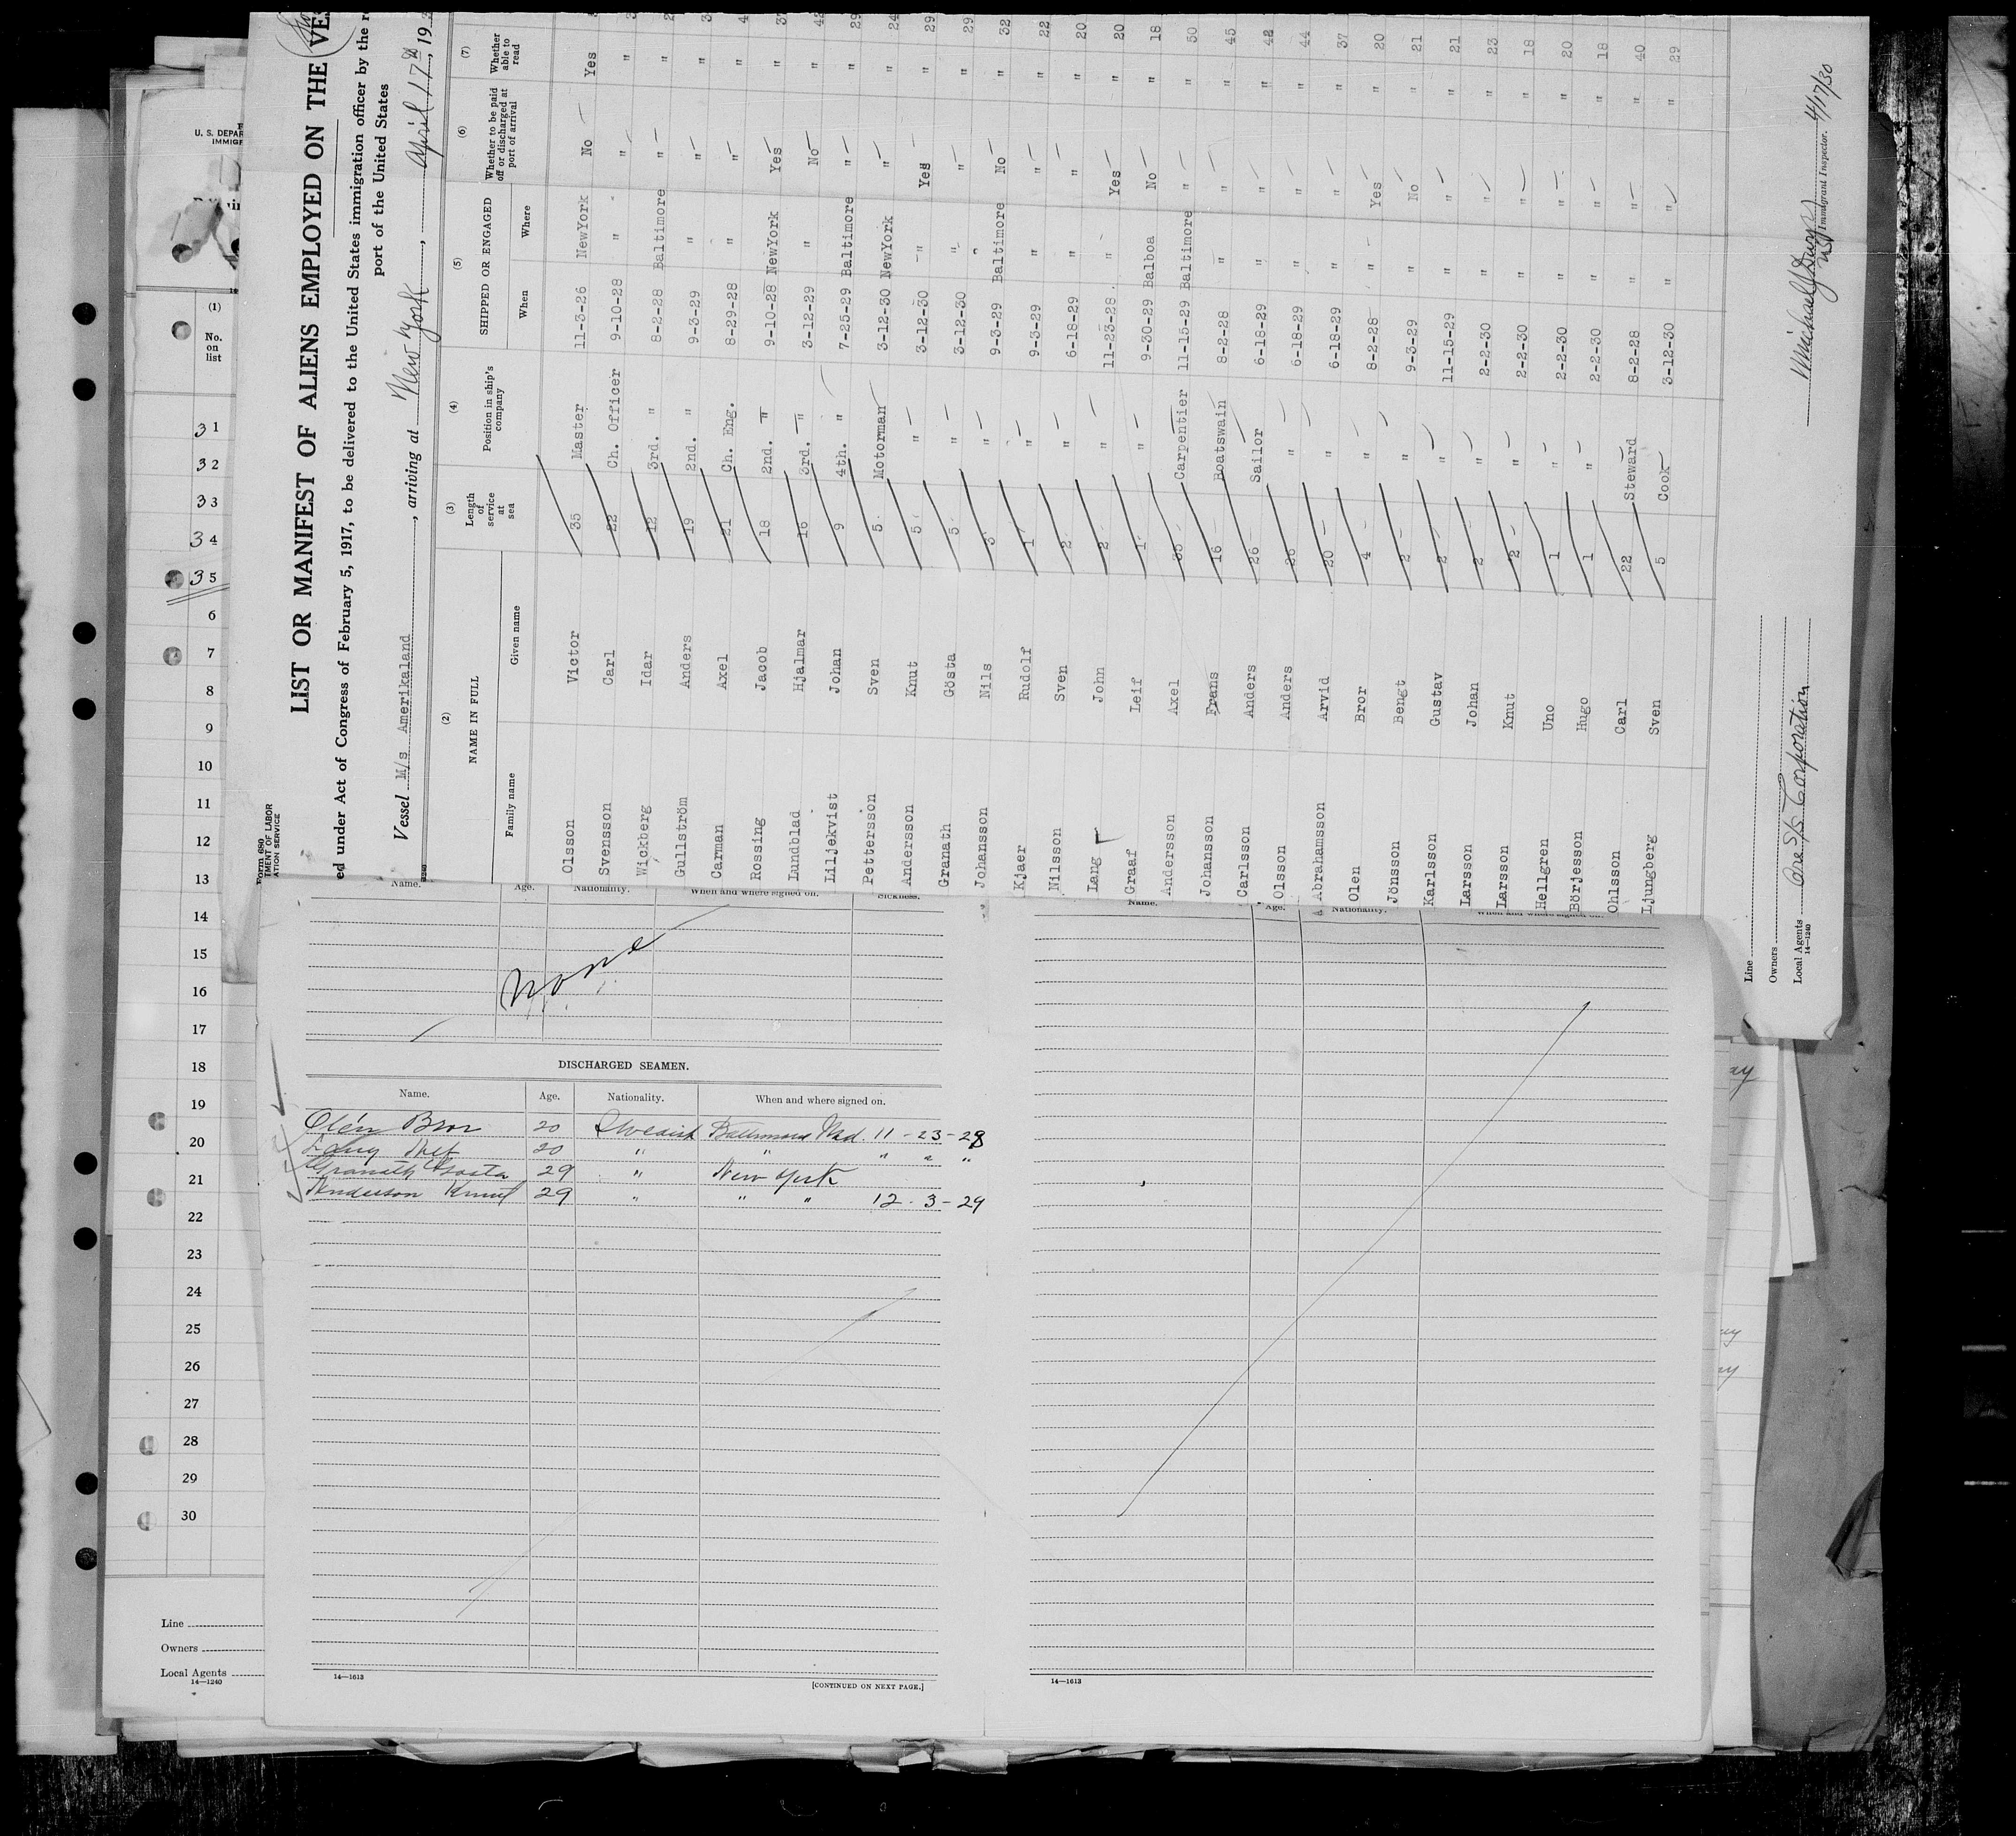 Form 680
TMENT OF LABOR
ATION SERVICE
LIST OR MANIFEST OF ALIENS EMPLOYED ON THE VES
ed under Act of Congress of February 5, 1917, to be delivered to the United States immigration officer by the r
port of the United States
Vessel M/s Amerikaland, arriving at New York, April 17th, 193
(2) NAME IN FULL (3) Length of service at sea (4) Position in ship's company (5) SHIPPED OR ENGAGED (6) Whether to be paid off or discharged at port of arrival (7) Whether able to read
Family name Given name When Where
Olsson Victor 35 Master 11-3-26 NewYork No Yes
Svensson Carl 22 Ch. Officer 9-10-28 " " " 3
Wickberg Idar 12 3rd. " 8-2-28 Baltimore " " 2
Gullström Anders 19 2nd. " 9-3-29 " " " 3
Carman Axel 21 Ch. Eng. 8-29-28 " " " 4
Rossing Jacob 18 2nd. " 9-10-28 NewYork Yes " 37
Lundblad Hjalmar 16 3rd. " 3-12-29 " No " 42
Liljekvist Johan 9 4th. " 7-25-29 Baltimore " " 29
Pettersson Sven 5 Motorman 3-12-30 NewYork " " 24
Andersson Knut 5 " 3-12-30 " Yes " 29
Granath Gösta 5 " 3-12-30 " " " 29
Johansson Nils 3 " 9-3-29 Baltimore No " 32
Kjaer Rudolf 1 " 9-3-29 " " " 22
Nilsson Sven 2 " 6-18-29 " " " 20
Lang John 2 " 11-23-28 " Yes " 20
Graaf Leif 1 " 9-30-29 Balboa No " 18
Andersson Axel 35 Carpentier 11-15-29 Baltimore " " 50
Johansson Frans 16 Boatswain 8-2-28 " " " 45
Carlsson Anders 26 Sailor 6-18-29 " " " 42
Olsson Anders 26 " 6-18-29 " " " 44
Abrahamsson Arvid 20 " 6-18-29 " " " 37
Olen Bror 4 " 8-2-28 " Yes " 20
Jönsson Bengt 2 " 9-3-29 " No " 21
Karlsson Gustav 2 " 11-15-29 " " " 21
Larsson Johan 2 " 2-2-30 " " " 23
Larsson Knut 2 " 2-2-30 " " " 18
Hellgren Uno 1 " 2-2-30 " " " 20
Börjesson Hugo 1 " 2-2-30 " " " 18
Ohlsson Carl 22 Steward 8-2-28 " " " 40
Ljungberg Sven 5 Cook 3-12-30 " " " 29
Line
Owners
Local Agents Ore S/S Corporation
14—1240
Immigrant Inspector. 4/17/30
U. S. DEPAR
IMMIGR
(1)
No. on list
31
32
33
34
35
6
7
8
9
10
11
12
13
14
15
16
17
18
19
20
21
22
23
24
25
26
27
28
29
30
Line
Owners
Local Agents
14—1240
Name. Age. Nationality. When and where signed on. Sickness.
None
DISCHARGED SEAMEN.
Name. Age. Nationality. When and where signed on.
Olén Bror 20 Swedish Baltimore Md. 11-23-28
20 " " " " "
Granath Gosta 29 " New York
Anderson Knut 29 " " " 12-3-29
14—1613
[CONTINUED ON NEXT PAGE.]
Name. Age. Nationality. When and where signed on.
14—1613